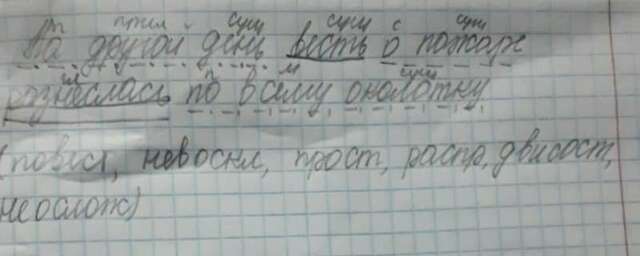 п прил сущ сущ п сущ
На другой день весть о пожаре
гл п м сущ
разнеслась по всему околотку
(повест, невоскл, прост, распр, двусост,
неослож)